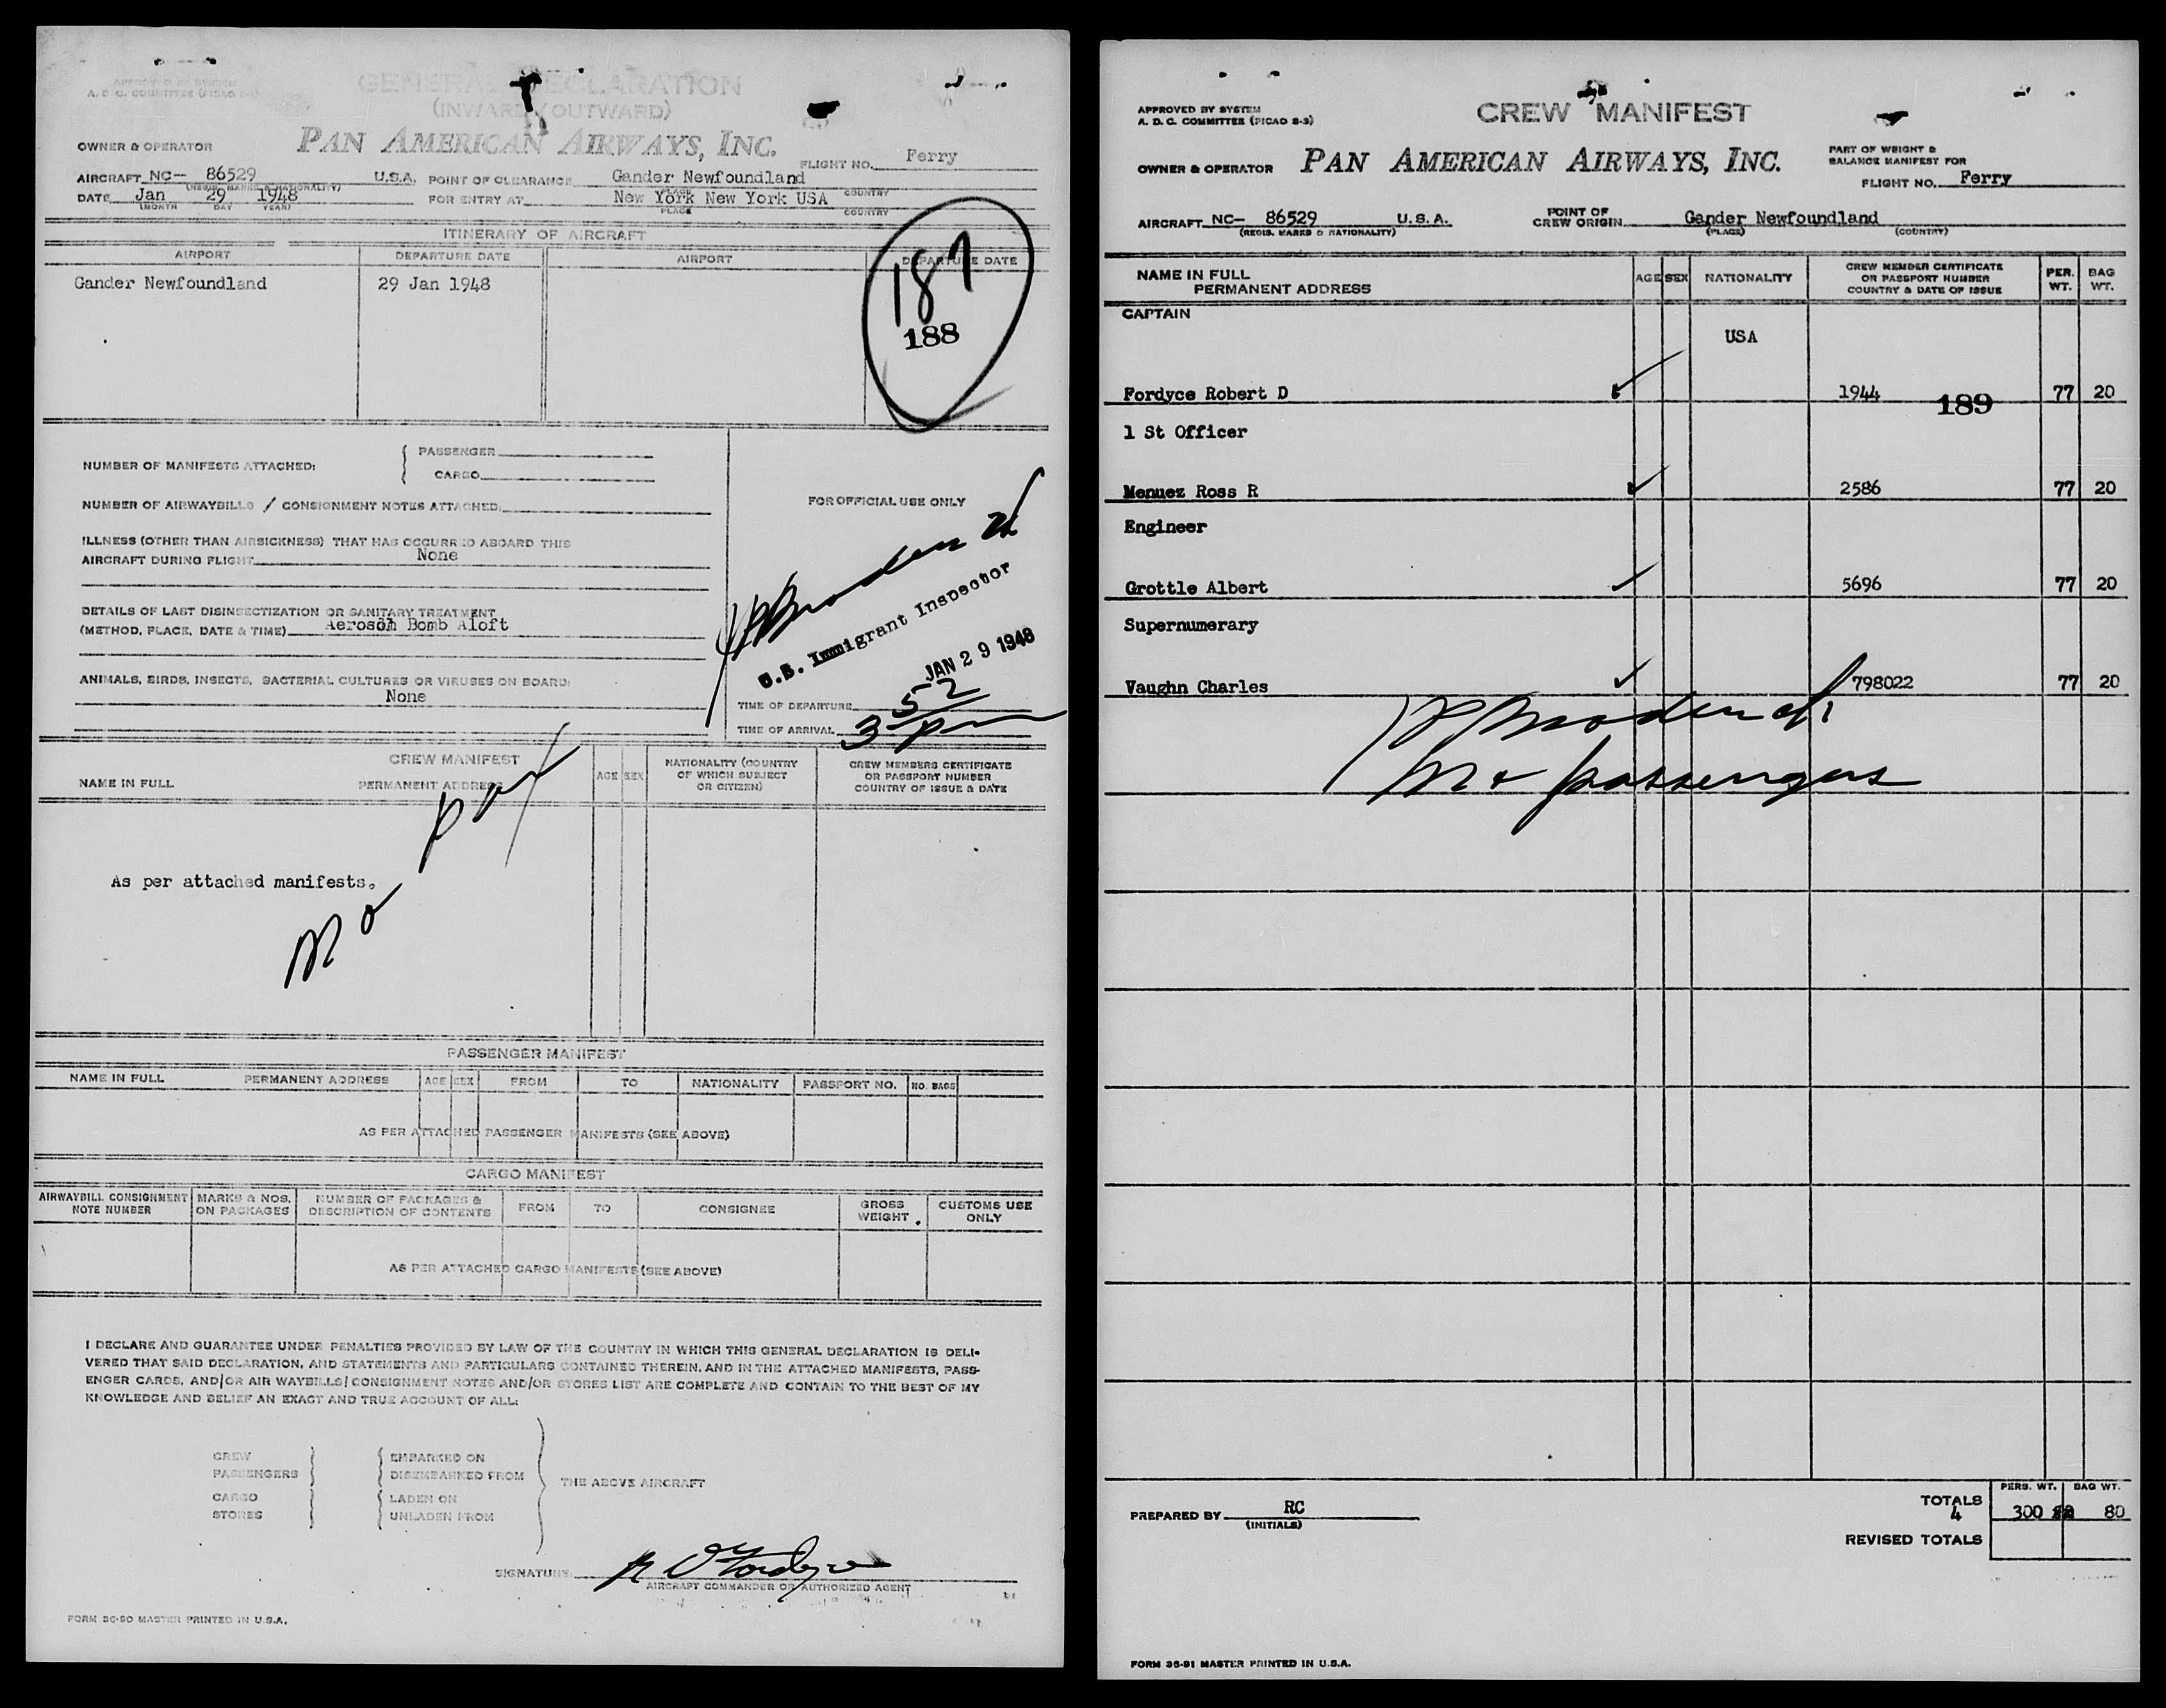 APPROVED BY SYSTEM
A. D. C. COMMITTEE (PICAO
GENERAL DECLARATION
(INWARD/OUTWARD)
OWNER & OPERATOR PAN AMERICAN AIRWAYS, INC. FLIGHT NO. Ferry
AIRCRAFT NC- 86529 U.S.A. POINT OF CLEARANCE Gander Newfoundland
(REGIS. MARKS & NATIONALITY) PLACE COUNTRY
DATE Jan 29 1948 FOR ENTRY AT New York New York USA
(MONTH DAY YEAR) PLACE COUNTRY
ITINERARY OF AIRCRAFT
AIRPORT DEPARTURE DATE AIRPORT DEPARTURE DATE
Gander Newfoundland 29 Jan 1948
187
188
NUMBER OF MANIFESTS ATTACHED: { PASSENGER
CARGO
NUMBER OF AIRWAYBILLS / CONSIGNMENT NOTES ATTACHED:
ILLNESS (OTHER THAN AIRSICKNESS) THAT HAS OCCURRED ABOARD THIS
AIRCRAFT DURING FLIGHT None
DETAILS OF LAST DISINSECTIZATION OR SANITARY TREATMENT
(METHOD, PLACE, DATE & TIME) Aerosol Bomb Aloft
ANIMALS, BIRDS, INSECTS, BACTERIAL CULTURES OR VIRUSES ON BOARD:
None
FOR OFFICIAL USE ONLY
U.S. Immigrant Inspector
JAN 29 1948
TIME OF DEPARTURE
TIME OF ARRIVAL 3 52 pm
CREW MANIFEST
NAME IN FULL PERMANENT ADDRESS AGE SEX NATIONALITY (COUNTRY
OF WHICH SUBJECT
OR CITIZEN) CREW MEMBERS CERTIFICATE
OR PASSPORT NUMBER
COUNTRY OF ISSUE & DATE
As per attached manifests.
No pax
PASSENGER MANIFEST
NAME IN FULL PERMANENT ADDRESS AGE SEX FROM TO NATIONALITY PASSPORT NO. NO. BAGS
AS PER ATTACHED PASSENGER MANIFESTS (SEE ABOVE)
CARGO MANIFEST
AIRWAYBILL CONSIGNMENT
NOTE NUMBER MARKS & NOS.
ON PACKAGES NUMBER OF PACKAGES &
DESCRIPTION OF CONTENTS FROM TO CONSIGNEE GROSS
WEIGHT CUSTOMS USE
ONLY
AS PER ATTACHED CARGO MANIFESTS (SEE ABOVE)
I DECLARE AND GUARANTEE UNDER PENALTIES PROVIDED BY LAW OF THE COUNTRY IN WHICH THIS GENERAL DECLARATION IS DELI-
VERED THAT SAID DECLARATION, AND STATEMENTS AND PARTICULARS CONTAINED THEREIN, AND IN THE ATTACHED MANIFESTS, PASS-
ENGER CARDS, AND/OR AIR WAYBILLS/CONSIGNMENT NOTES AND/OR STORES LIST ARE COMPLETE AND CONTAIN TO THE BEST OF MY
KNOWLEDGE AND BELIEF AN EXACT AND TRUE ACCOUNT OF ALL:
CREW EMBARKED ON
PASSENGERS DISEMBARKED FROM
THE ABOVE AIRCRAFT
CARGO LADEN ON
STORES UNLADEN FROM
SIGNATURE: R D Fordyce
AIRCRAFT COMMANDER OR AUTHORIZED AGENT
FORM 36-90 MASTER PRINTED IN U.S.A.
APPROVED BY SYSTEM
A. D. C. COMMITTEE (PICAO 8-3)
CREW MANIFEST
OWNER & OPERATOR PAN AMERICAN AIRWAYS, INC.
PART OF WEIGHT &
BALANCE MANIFEST FOR
FLIGHT NO. Ferry
AIRCRAFT NC- 86529 U.S.A. POINT OF
CREW ORIGIN Gander Newfoundland
(REGIS. MARKS & NATIONALITY) (PLACE) (COUNTRY)
NAME IN FULL
PERMANENT ADDRESS AGE SEX NATIONALITY CREW MEMBER CERTIFICATE
OR PASSPORT NUMBER
COUNTRY & DATE OF ISSUE PER.
WT. BAG
WT.
CAPTAIN
USA
Fordyce Robert D 1944 77 20
189
1 St Officer
Menuez Ross R 2586 77 20
Engineer
Grottle Albert 5696 77 20
Supernumerary
Vaughn Charles 798022 77 20
No passengers
PERS. WT. BAG WT.
PREPARED BY RC TOTALS
(INITIALS) 4 300 80
REVISED TOTALS
FORM 36-91 MASTER PRINTED IN U.S.A.